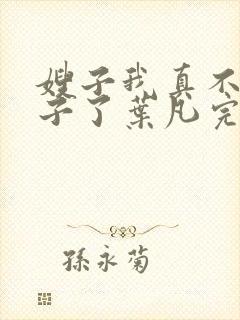 嫂子我真不
子了葉凡完
孫永菊